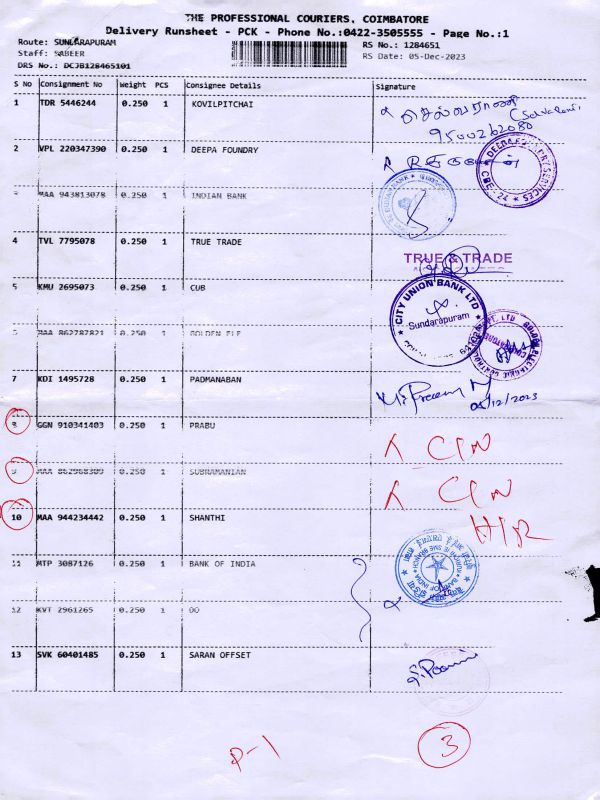 THE PROFESSIONAL COURIERS, COIMBATORE
Delivery Runsheet - PCK - Phone No.:0422-3505555 - Page No.:1
Route: SUNDARAPURAM
RS No.: 1284651
Staff: SABEER
RS Date: 05-Dec-2023
DRS No.: DCJB128465101
S No Consignment No Weight PCS Consignee Details Signature
1 TDR 5446244 0.250 1 KOVILPITCHAI
செல்வராணி
9500262080
2 VPL 220347390 0.250 1 DEEPA FOUNDRY
3 MAA 943813078 0.250 1 INDIAN BANK
4 TVL 7795078 0.250 1 TRUE TRADE
TRUE & TRADE
5 KMU 2695073 0.250 1 CUB
CITY UNION BANK LTD
Sundarapuram
6 MAA 862787821 0.250 1 GOLDEN ELE
7 KDI 1495728 0.250 1 PADMANABAN
05/12/2023
8 GGN 910341403 0.250 1 PRABU
9 MAA 862968309 0.250 1 SUBRAMANIAN
10 MAA 944234442 0.250 1 SHANTHI
11 MTP 3087126 0.250 1 BANK OF INDIA
BANK OF INDIA
12 KVT 2961265 0.250 1 OO
13 SVK 60401485 0.250 1 SARAN OFFSET
P-1
3